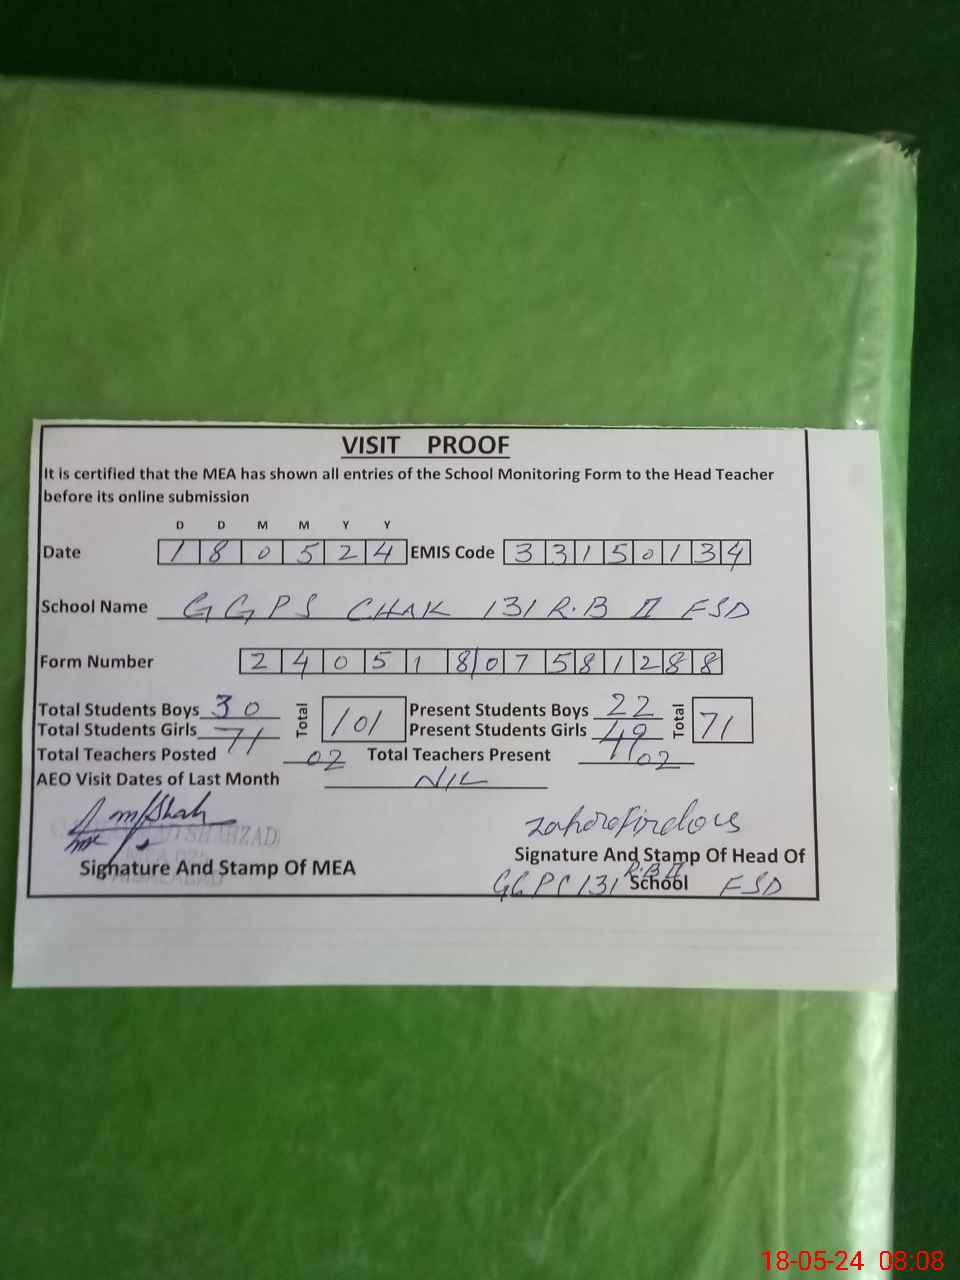 VISIT PROOF
It is certified that the MEA has shown all entries of the School Monitoring Form to the Head Teacher
before its online submission
D D M M Y Y
Date 1 8 0 5 2 4 EMIS Code 3 3 1 5 0 1 3 4
School Name GGPS CHAK 131 R.B II FSD
Form Number 2 4 0 5 1 8 0 7 5 8 1 2 8 8
Total Students Boys 30 Total 101 Present Students Boys 22 Total 71
Total Students Girls 71 Present Students Girls 49
Total Teachers Posted 02 Total Teachers Present 02
AEO Visit Dates of Last Month NIL
SHAHZAD
Signature And Stamp Of MEA
Signature And Stamp Of Head Of
School
131 R.B II FSD
18-05-24 08:08